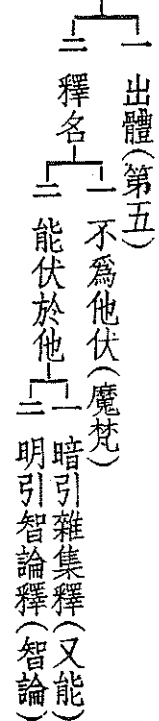 一　出體(第五)
二　釋名
一　不爲他伏(魔梵)
二　能伏於他
一　暗引雜集釋(又能)
二　明引智論釋(智論)